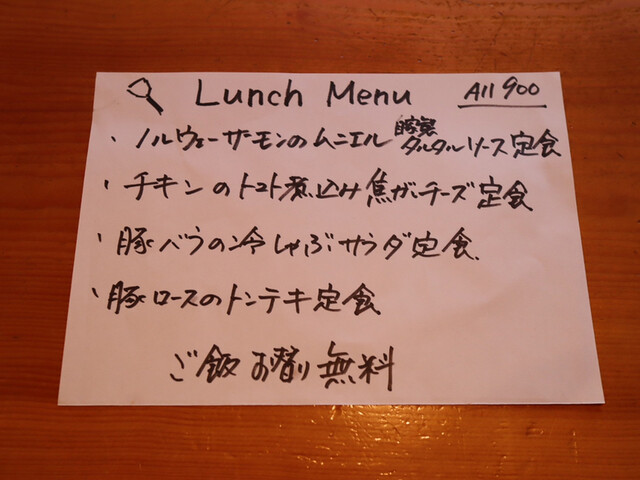 Lunch Menu All 900
・ノルウェーサーモンのムニエル 自家製タルタルソース定食
・チキンのトマト煮込み焦がしチーズ定食
・豚バラの冷しゃぶサラダ定食
・豚ロースのトンテキ定食
ご飯お替り無料